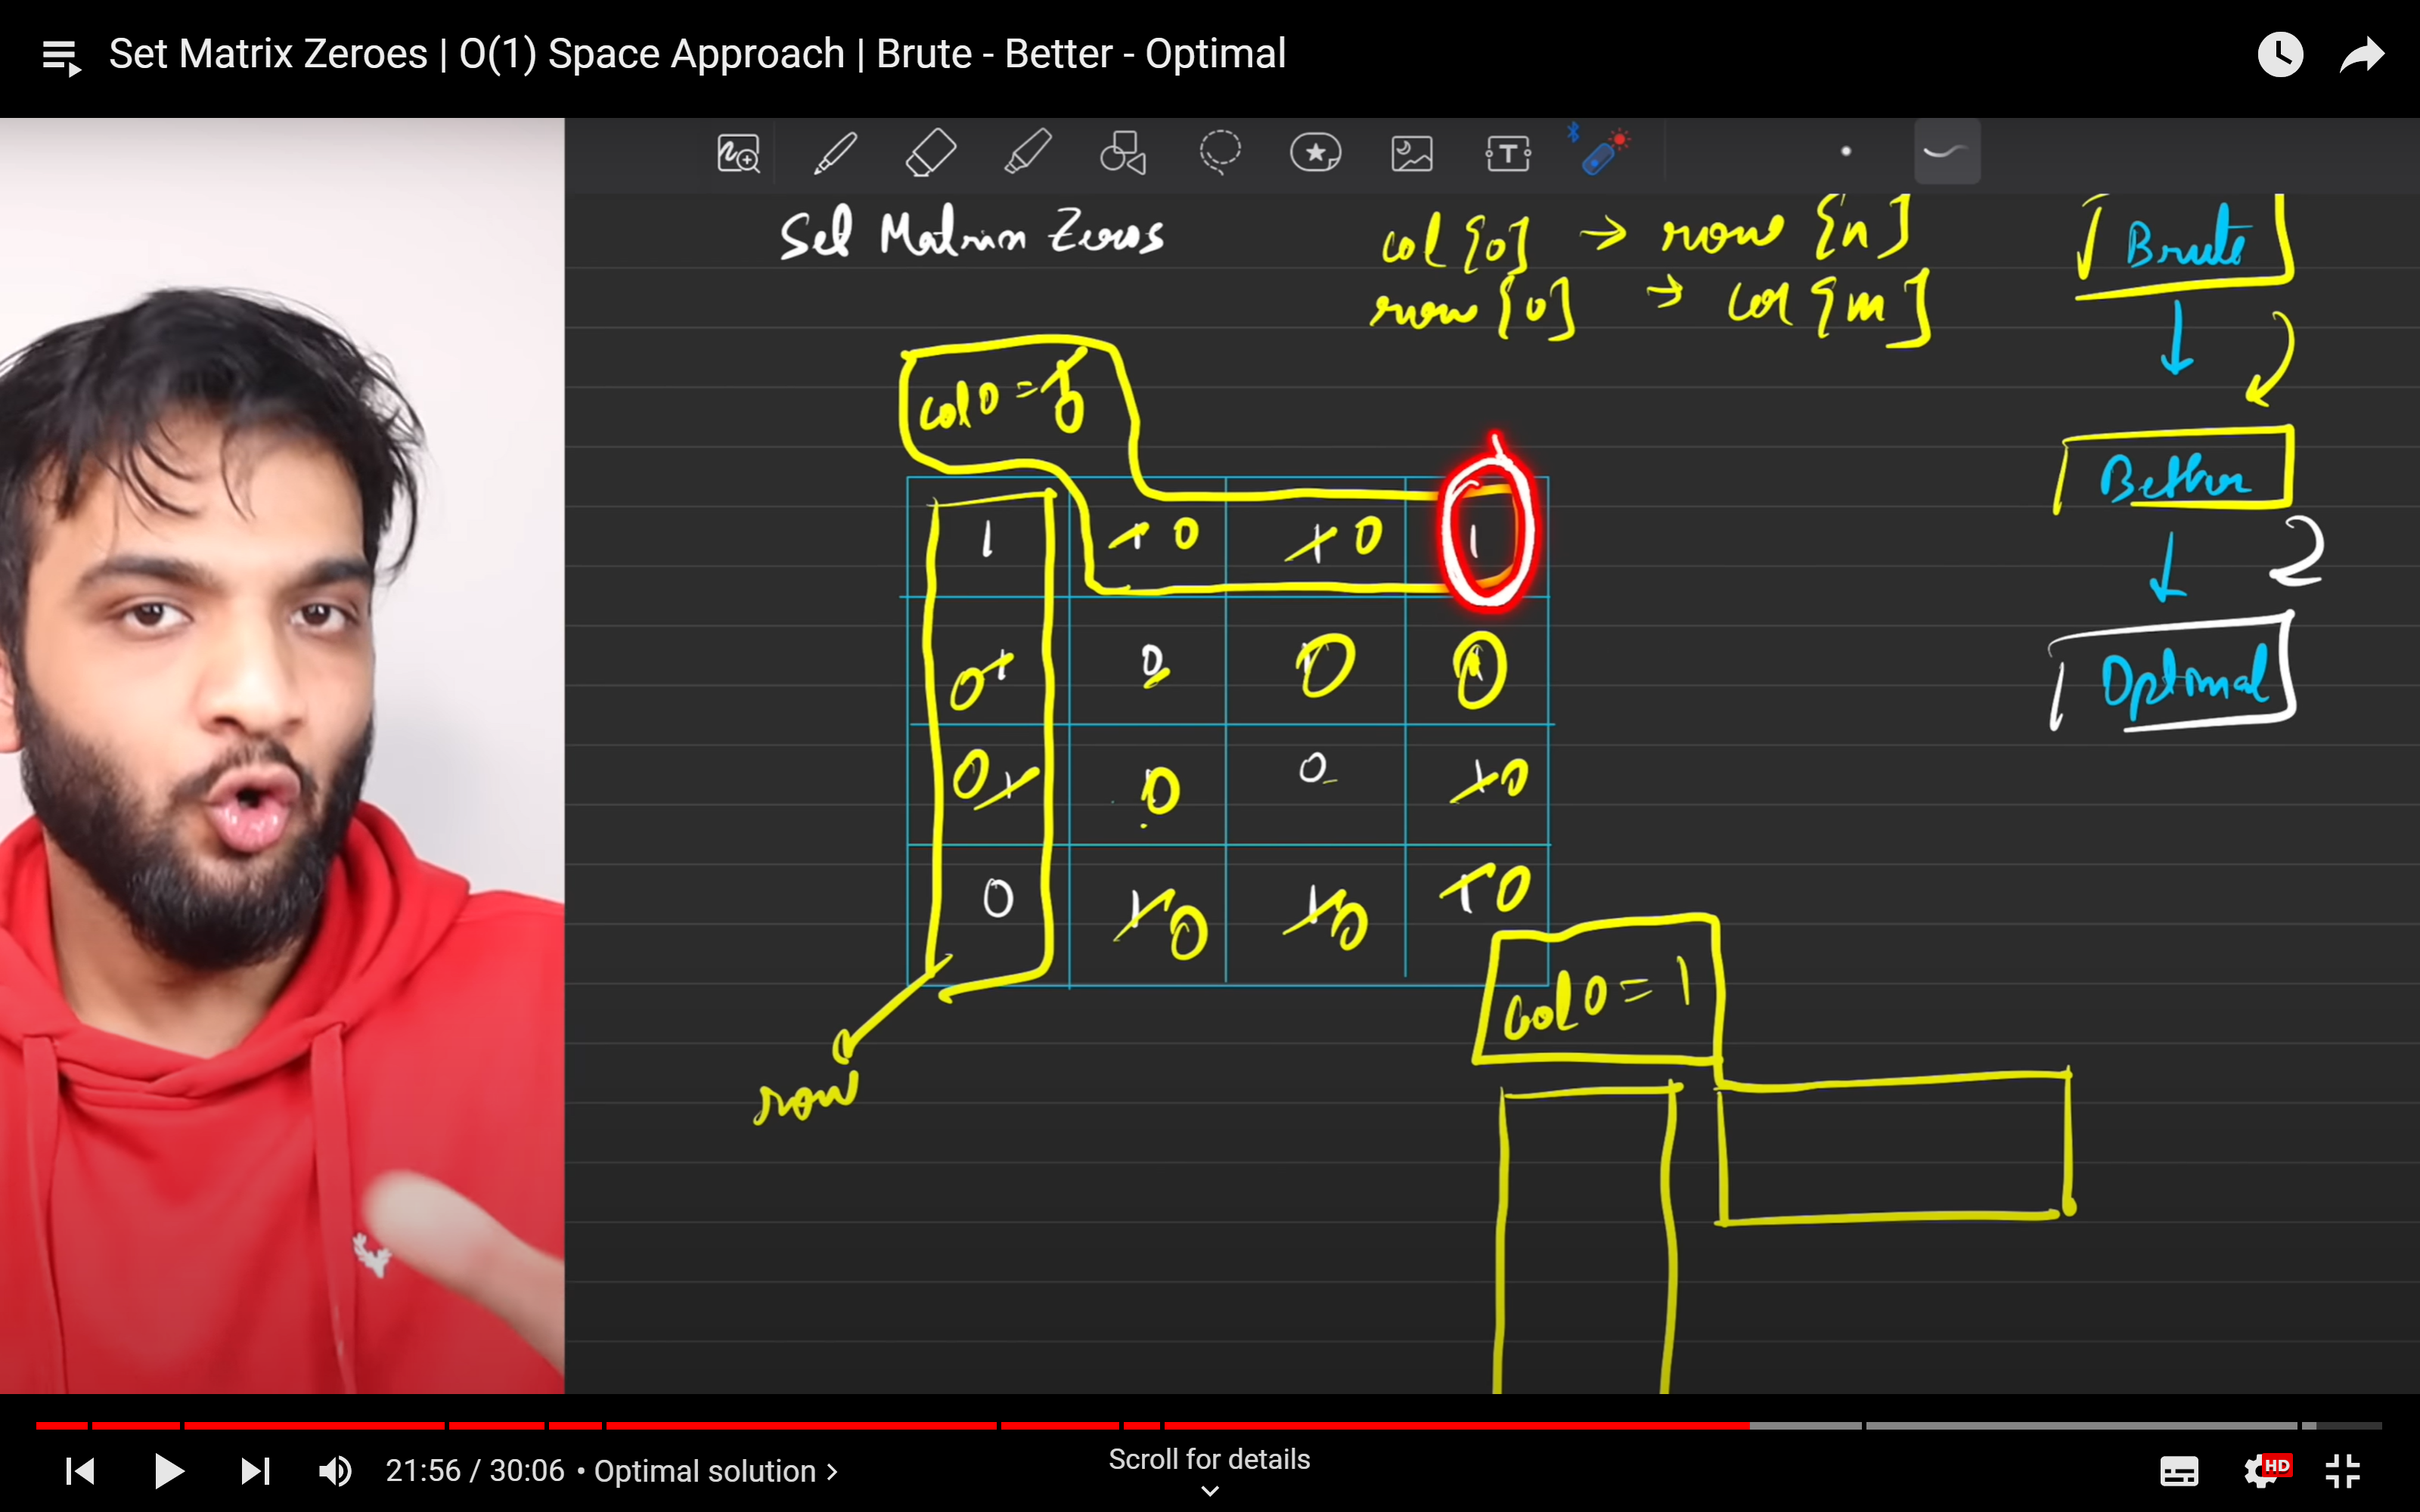 Set Matrix Zeroes | O(1) Space Approach | Brute - Better - Optimal
Set Matrix Zeros
col[0] → row[n]
row[0] → col[m]
Brute
Better
2
Optimal
col0 = 1 0
1 1 0 1 0 1
0 1 0 0 0
0 1 0 0 1 0
0 1 0 1 0 1 0
col0 = 1
row
21:56 / 30:06 • Optimal solution
Scroll for details
HD